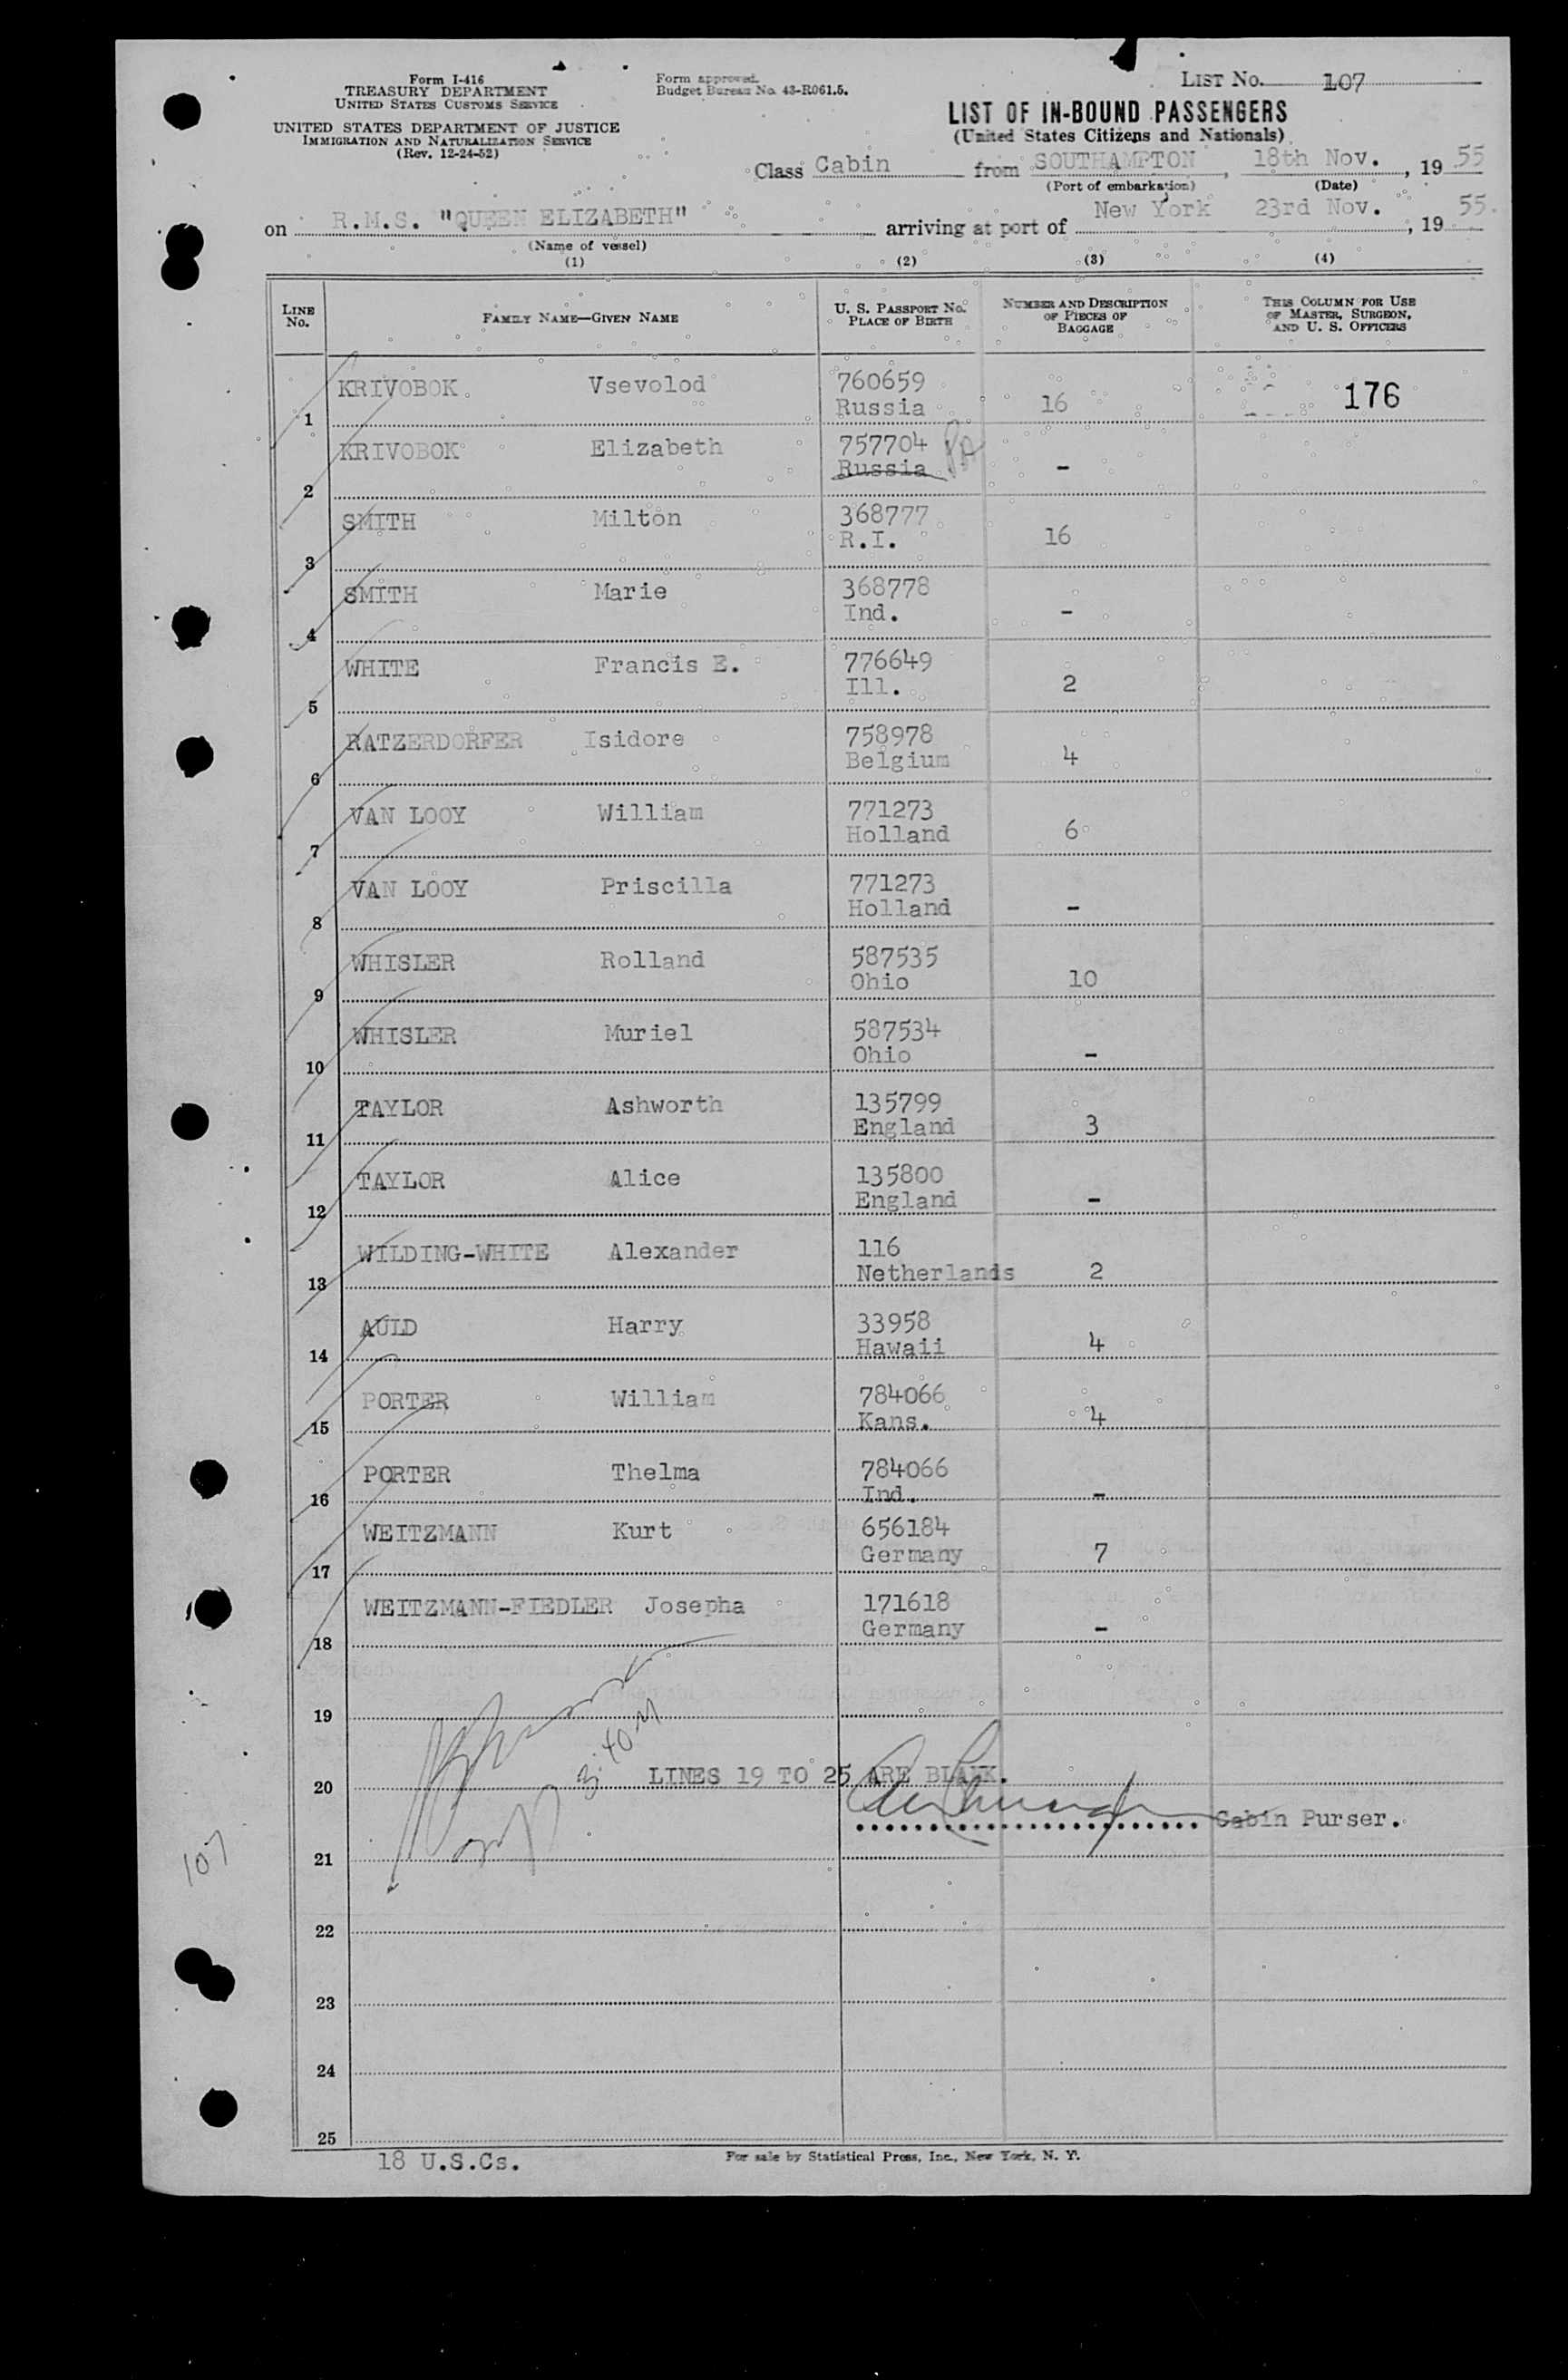 Form I-416
TREASURY DEPARTMENT
UNITED STATES CUSTOMS SERVICE
UNITED STATES DEPARTMENT OF JUSTICE
IMMIGRATION AND NATURALIZATION SERVICE
(Rev. 12-24-52)
Form approved.
Budget Bureau No. 43-R061.5.
LIST No. 107
LIST OF IN-BOUND PASSENGERS
(United States Citizens and Nationals)
Class Cabin from SOUTHAMPTON, 18th Nov., 19 55
(Port of embarkation) (Date)
on R.M.S. "QUEEN ELIZABETH" arriving at port of New York 23rd Nov., 19 55.
(Name of vessel)
(1) (2) (3) (4)
LINE No. FAMILY NAME—GIVEN NAME U. S. PASSPORT No. PLACE OF BIRTH NUMBER AND DESCRIPTION OF PIECES OF BAGGAGE THIS COLUMN FOR USE OF MASTER, SURGEON, AND U. S. OFFICERS
1 KRIVOBOK Vsevolod 760659 Russia 16 176
2 KRIVOBOK Elizabeth 757704 Russia -
3 SMITH Milton 368777 R.I. 16
4 SMITH Marie 368778 Ind. -
5 WHITE Francis E. 776649 Ill. 2
6 RATZERDORFER Isidore 758978 Belgium 4
7 VAN LOOY William 771273 Holland 6
8 VAN LOOY Priscilla 771273 Holland -
9 WHISLER Rolland 587535 Ohio 10
10 WHISLER Muriel 587534 Ohio -
11 TAYLOR Ashworth 135799 England 3
12 TAYLOR Alice 135800 England -
13 WILDING-WHITE Alexander 116 Netherlands 2
14 AULD Harry 33958 Hawaii 4
15 PORTER William 784066 Kans. 4
16 PORTER Thelma 784066 Ind. -
17 WEITZMANN Kurt 656184 Germany 7
18 WEITZMANN-FIEDLER Josepha 171618 Germany -
19
20 LINES 19 TO 25 ARE BLANK.
Cabin Purser.
21
107
22
23
24
25
18 U.S.Cs.
For sale by Statistical Press, Inc., New York, N. Y.